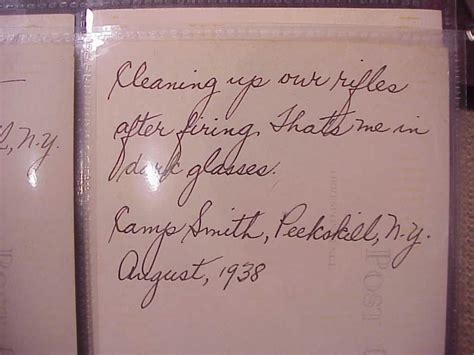 Cleaning up our rifles
after firing. That's me in
dark glasses.
Camp Smith, Peekskill, N.Y.
August, 1938
N.Y.
POST